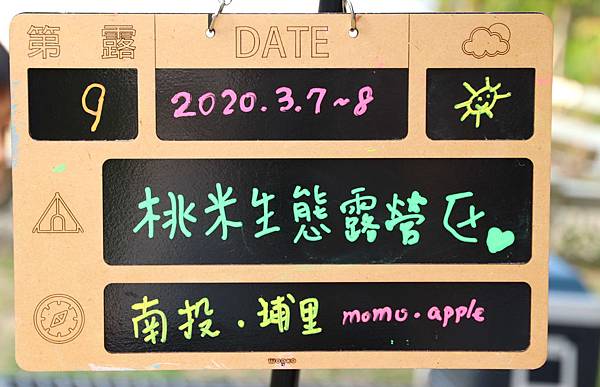 第 露 DATE
9 2020.3.7~8
桃米生態露營区
南投.埔里 momo.apple